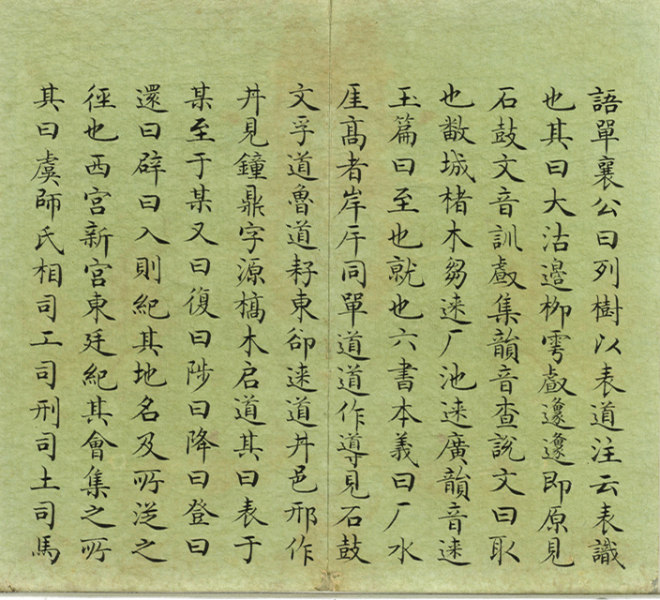 語單襄公曰列樹以表道注云表識
也其曰大沽邉栁雩䖒邍邍即原見
石鼓文音訓䖒集韻音查說文曰取
也㪚城楮木芻逨厂池逨廣韻音逨
玉篇曰至也就也六書本義曰厂水
厓高者岸厈同單道道作導見石鼓
文孚道魯道耔東卻逨道丼邑邢作
丼見鐘鼎字源槁木启道其曰表于
某至于某又曰復曰陟曰降曰登曰
還曰辟曰入則紀其地名及所從之
徑也西宮新宮東廷紀其會集之所
其曰虞師氏相司工司刑司土司馬